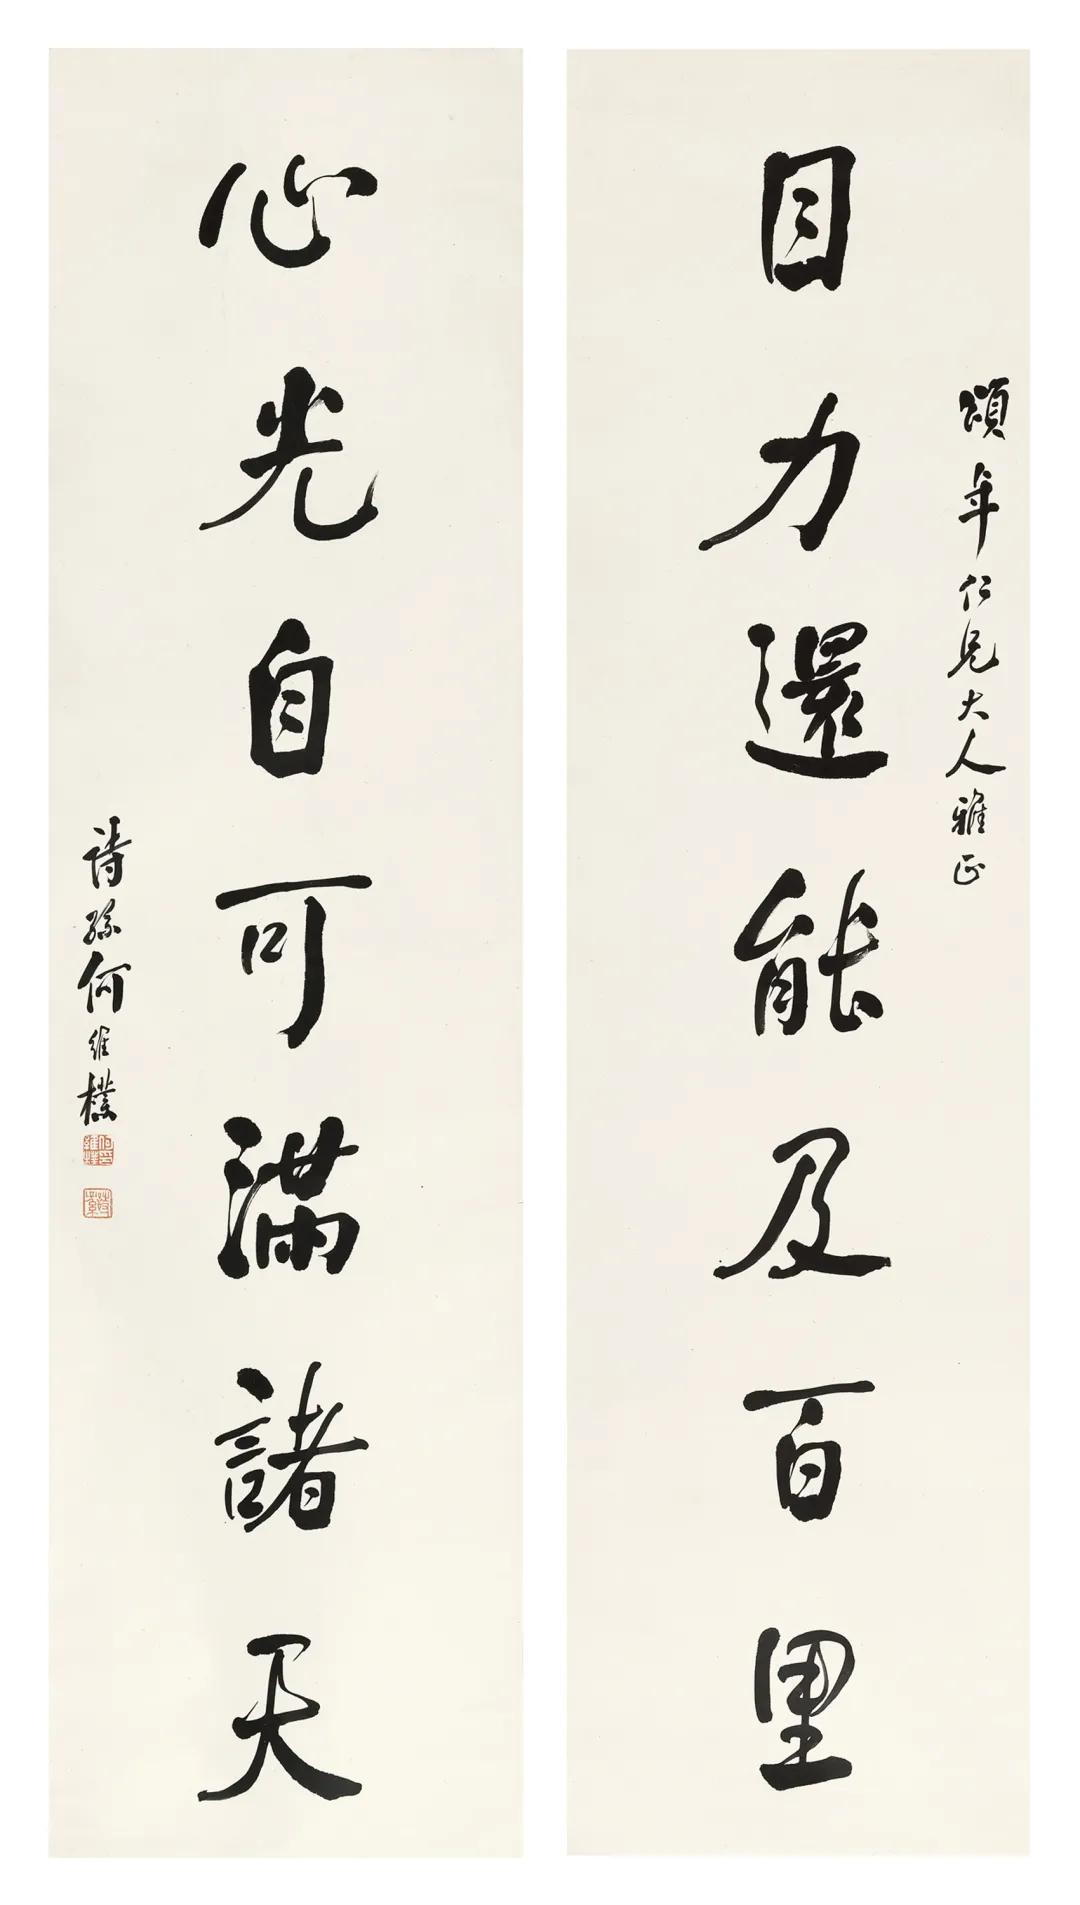 頌年仁兄大人雅正
目力還能及百里
心光自可滿諸天
詩孫何維樸
何維樸印
詩孫